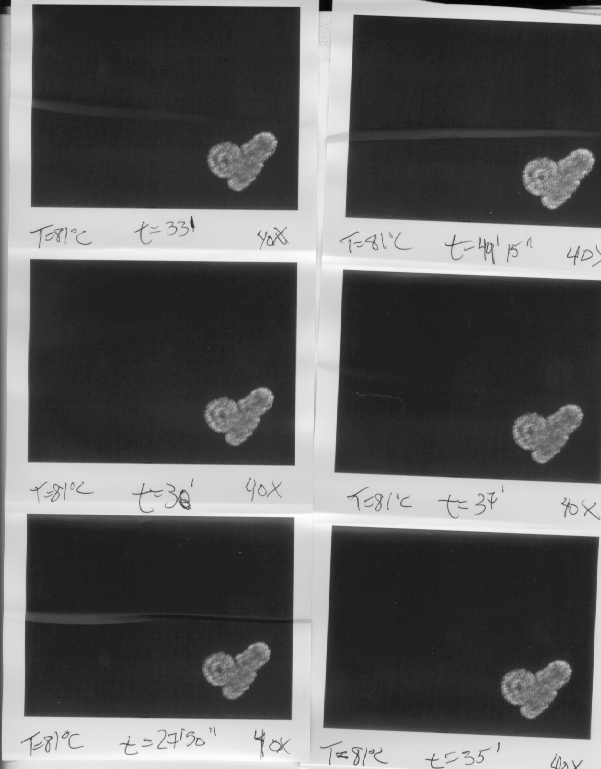 T=81°C t=33' 40X
T=81°C t=49' 15" 40X
T=81°C 40X
T=81°C t=37' 40X
T=81°C t=27'30" 40X
T=81°C t=35' 40X